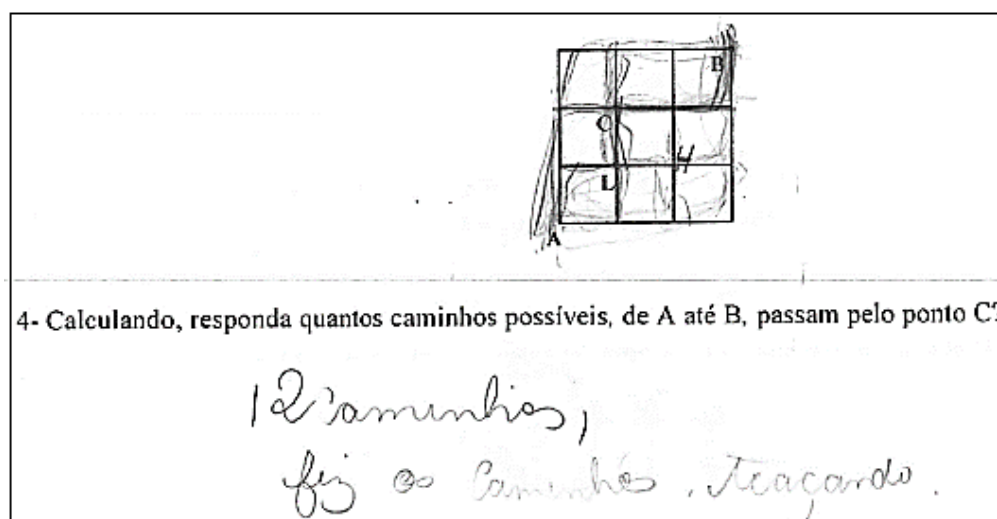 B
C
H
L
A
4- Calculando, responda quantos caminhos possíveis, de A até B, passam pelo ponto C?
12 caminhos,
fiz os caminhos, traçando.